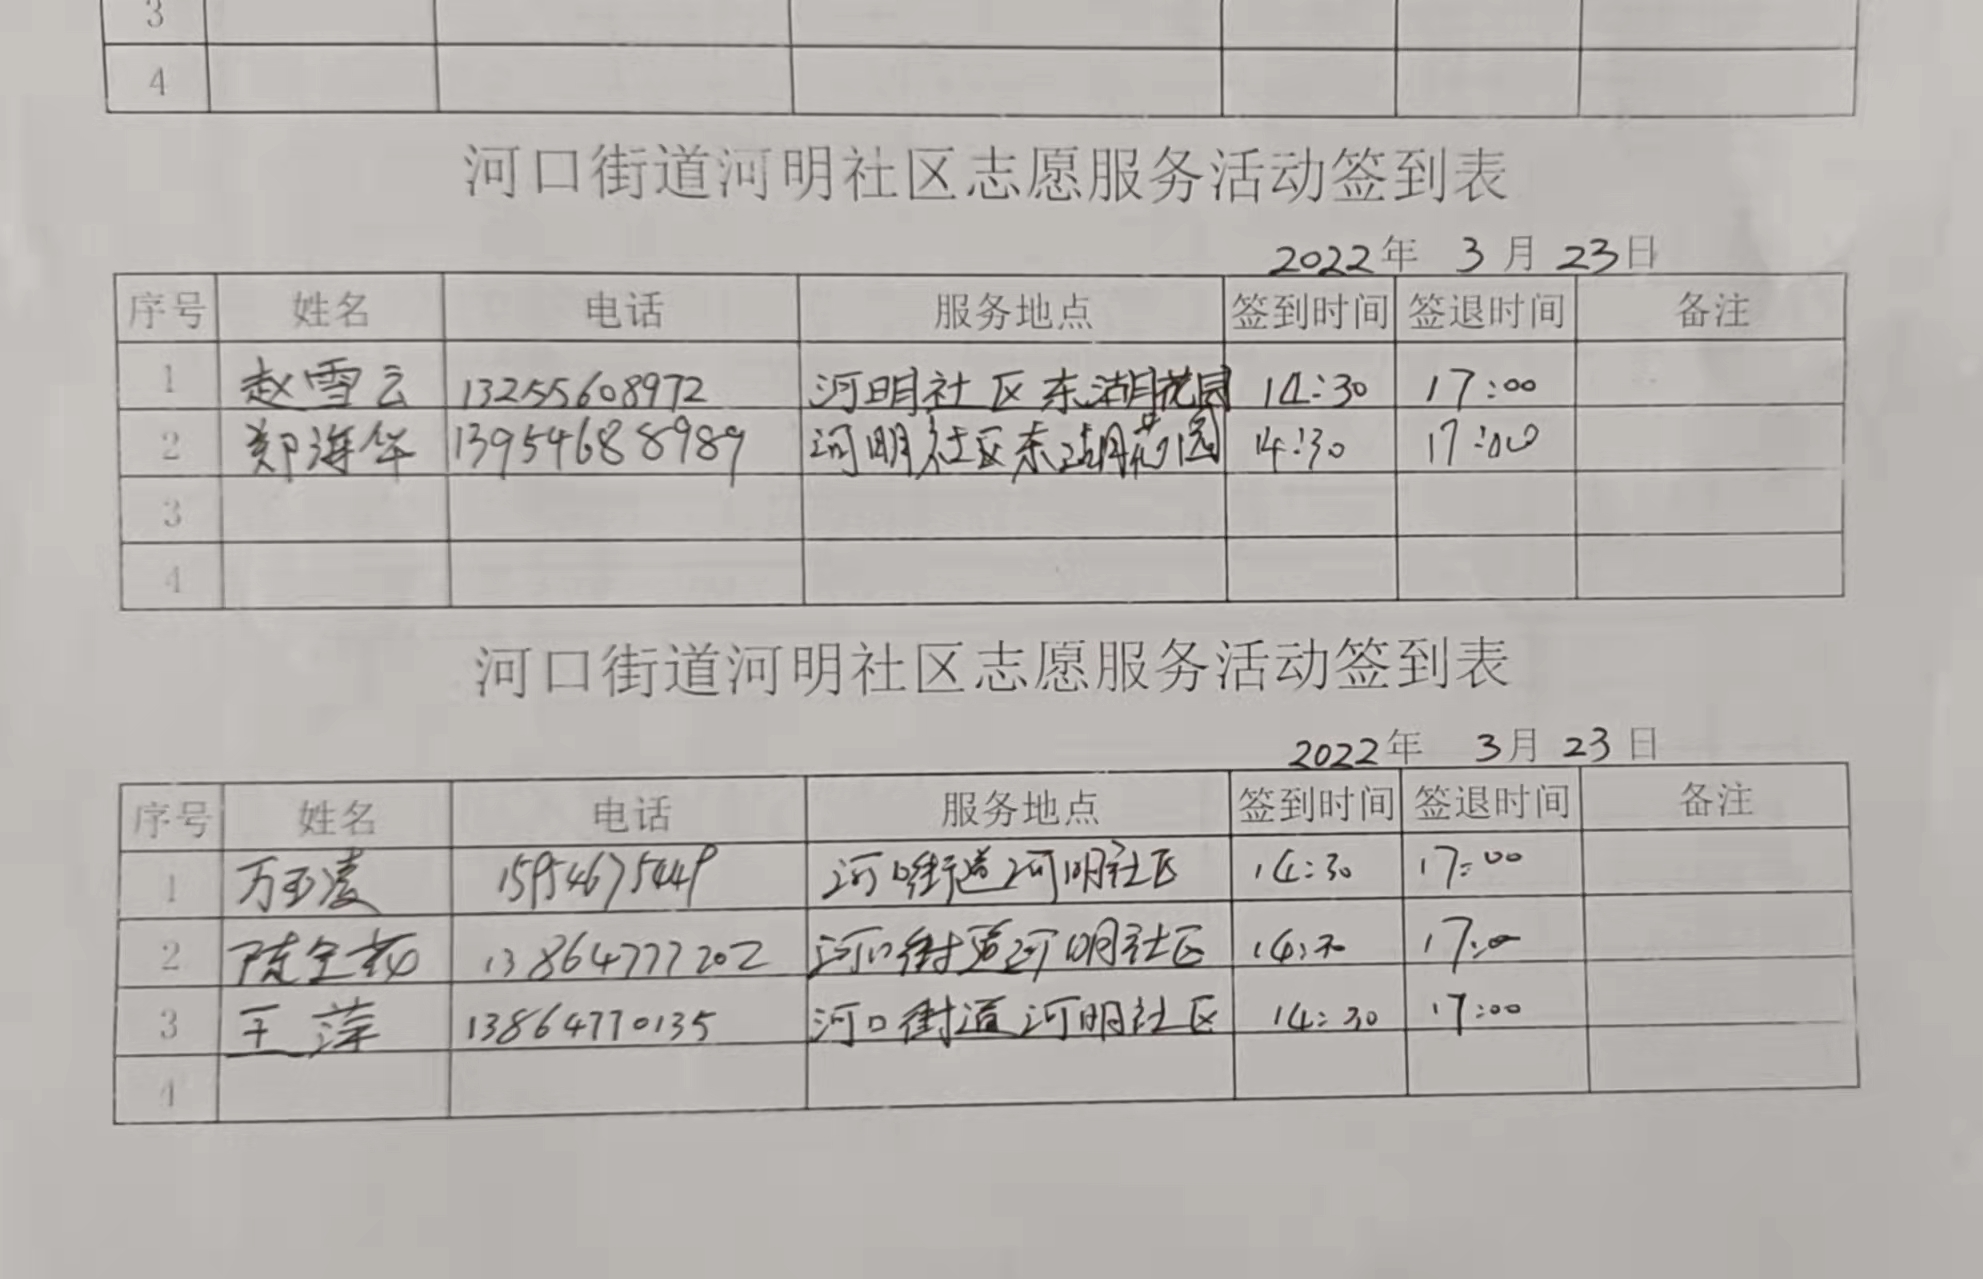 3
4
河口街道河明社区志愿服务活动签到表
2022年 3月 23日
序号 姓名 电话 服务地点 签到时间 签退时间 备注
1 赵雪云 13255608972 河明社区东湖花园 14:30 17:00
2 郑海华 13954688989 河明社区东湖花园 14:30 17:00
3
4
河口街道河明社区志愿服务活动签到表
2022年 3月 23日
序号 姓名 电话 服务地点 签到时间 签退时间 备注
1 万玉凌 15954675449 河口街道河明社区 14:30 17:00
2 陈 13864777202 河口街道河明社区 14:30 17:00
3 王萍 13864770135 河口街道河明社区 14:30 17:00
4